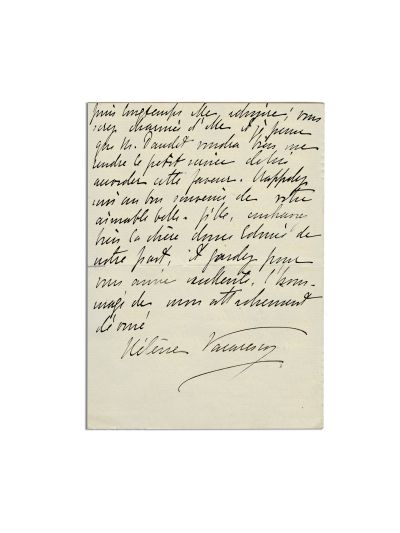 puis longtemps elle admire; vous
serez charmée d'elle et je pense
que M. Daudet voudra bien me
rendre le petit service de lui
accorder cette faveur. Rappelez
moi au bon souvenir de votre
aimable belle-fille, embrassez
bien la chère dame Edmée de
notre part, et gardez pour
vous amie excellente, l'hom-
mage de mon attachement
dévoué
Hélène Vacaresco